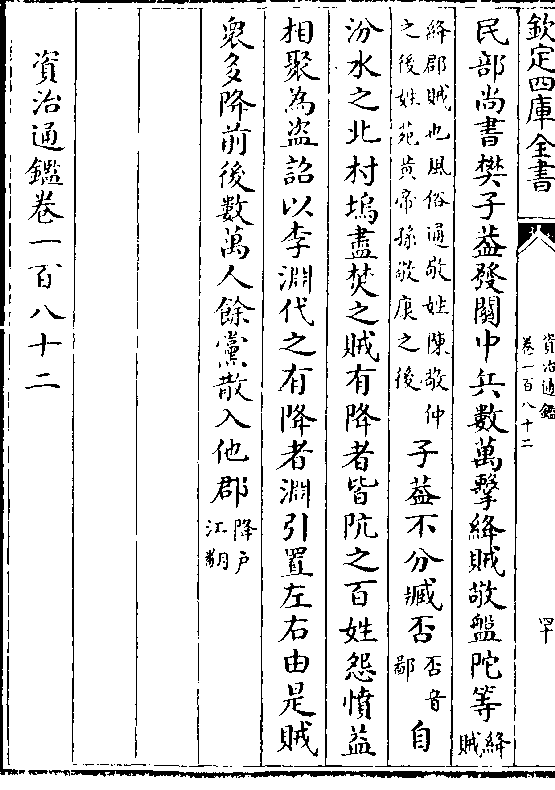 欽定四庫全書
資治通鑑
卷一百八十二
四十
民部尚書樊子葢發關中兵數萬擊絳賊敬盤陀等絳賊
絳郡賊也風俗通敬姓陳敬仲
之後姓苑黄帝孫敬康之後
子葢不分臧否否音鄙自
汾水之北村塢盡焚之賊有降者皆阬之百姓怨憤益
相聚為盗詔以李淵代之有降者淵引置左右由是賊
衆多降前後數萬人餘黨散入他郡降戶江翻
資治通鑑卷一百八十二